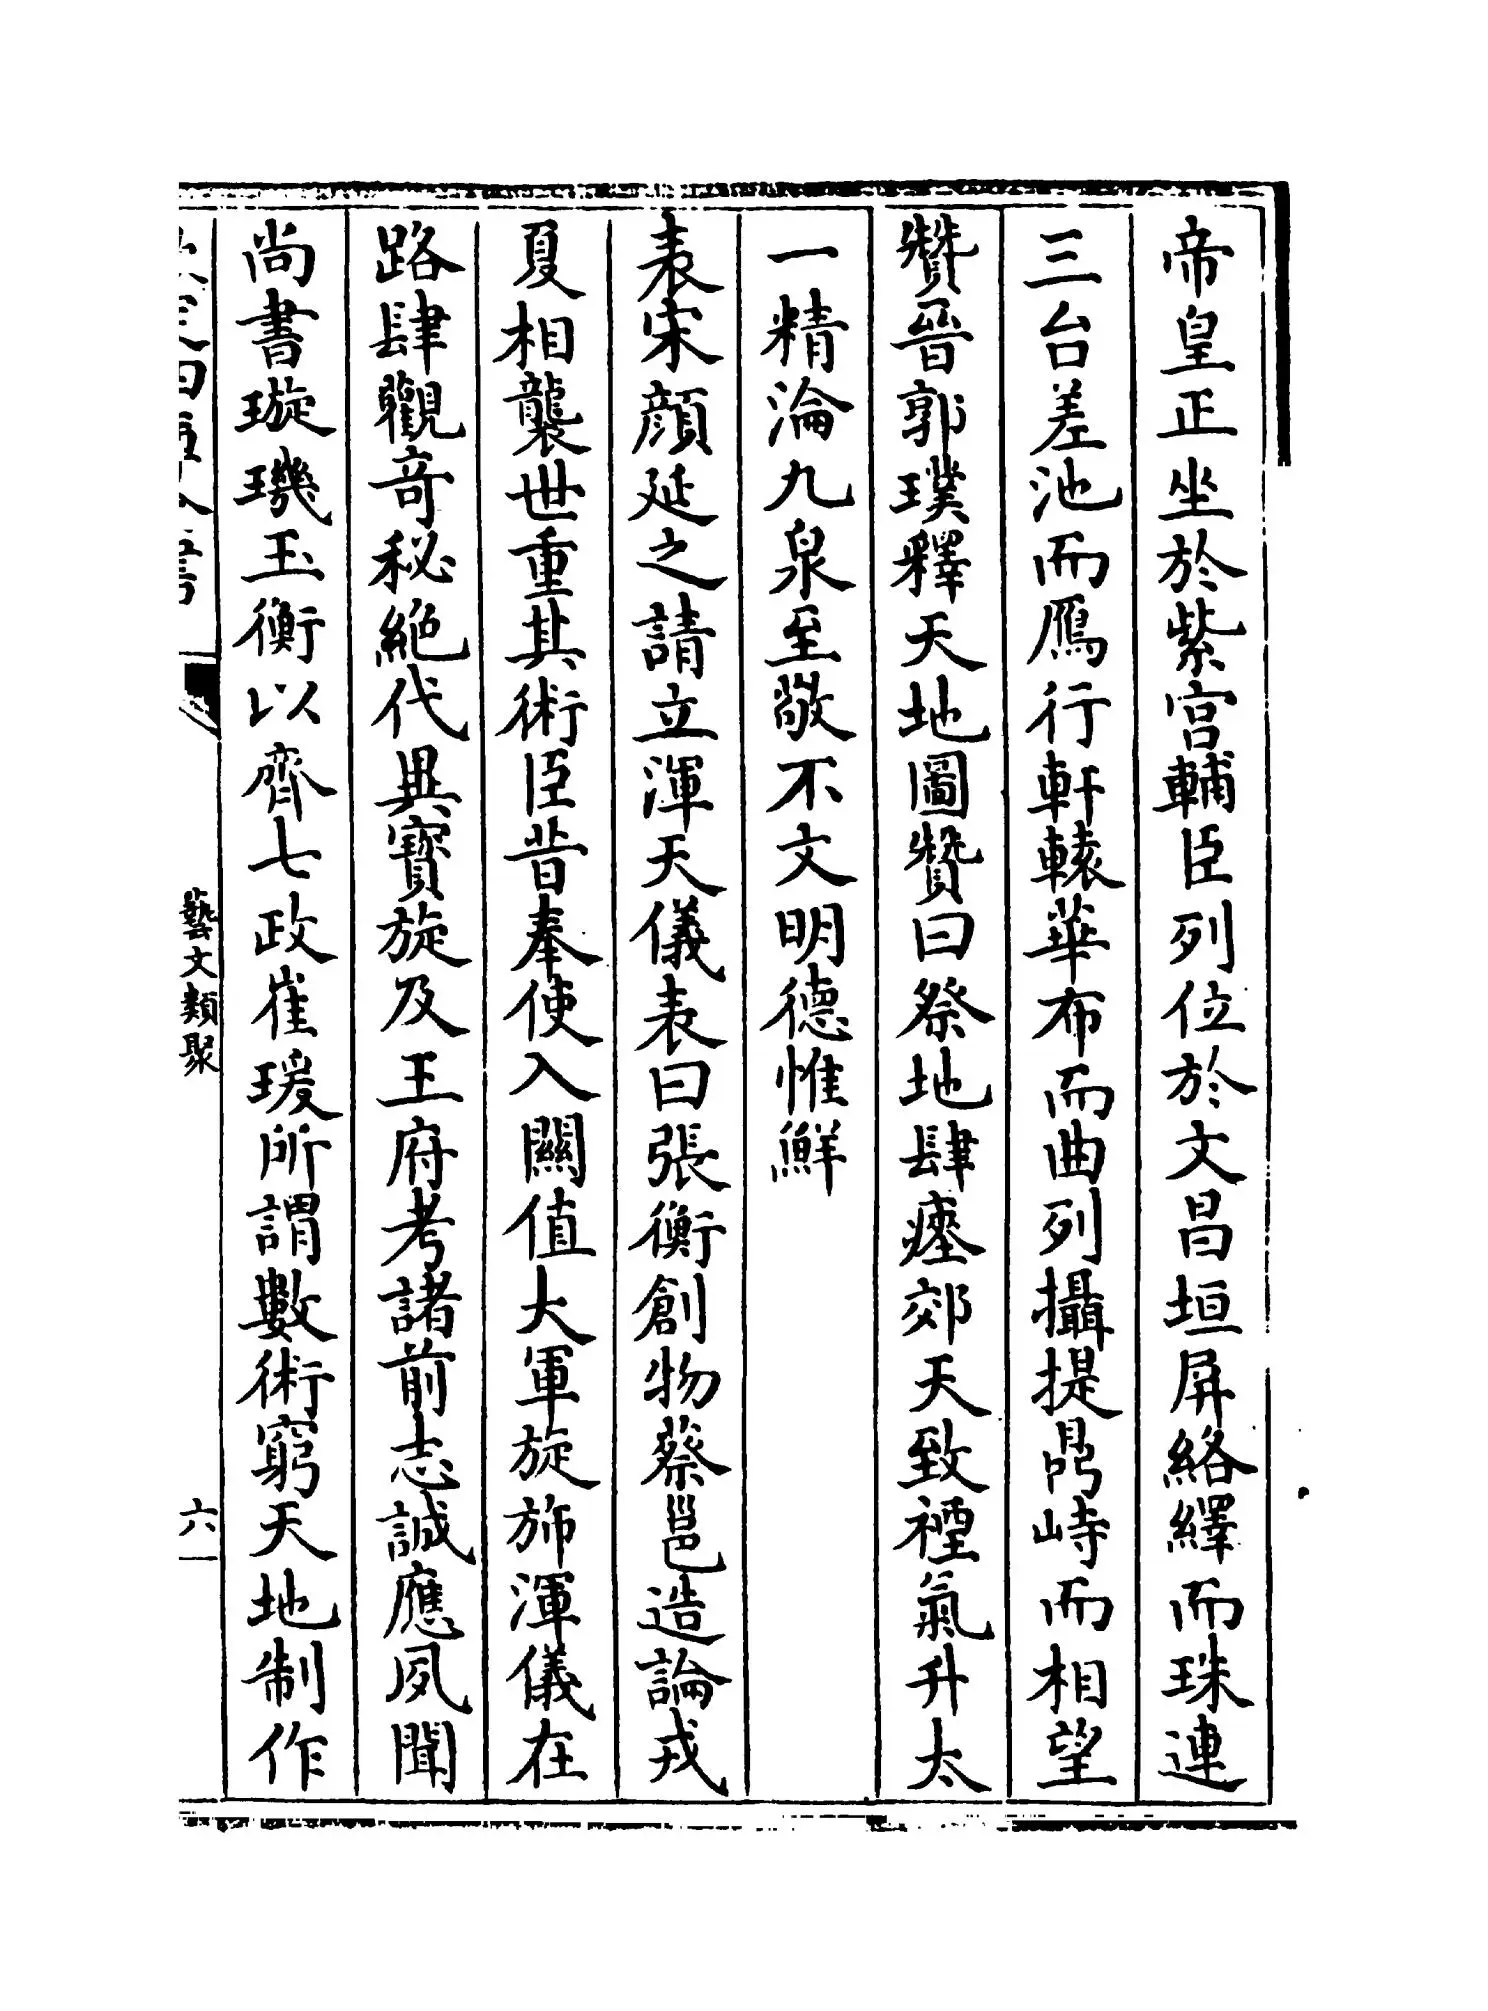 帝皇正坐於紫宫輔臣列位於文昌垣屏絡繹而珠連
三台差池而鴈行軒轅華布而曲列攝提鼎峙而相望
贊晉郭璞釋天地圖贊曰祭地肆瘞郊天致禋氣升太
一精淪九泉至敬不文明德惟鮮
表宋顔延之請立渾天儀表曰張衡創物蔡邕造論戎
夏相襲世重其術臣昔奉使入關值大軍旋斾渾儀在
路肆觀竒秘絶代異寳旋及王府考諸前志誠應夙聞
尚書璇璣玉衡以齊七政崔瑗所謂數術窮天地制作
藝文類聚
六